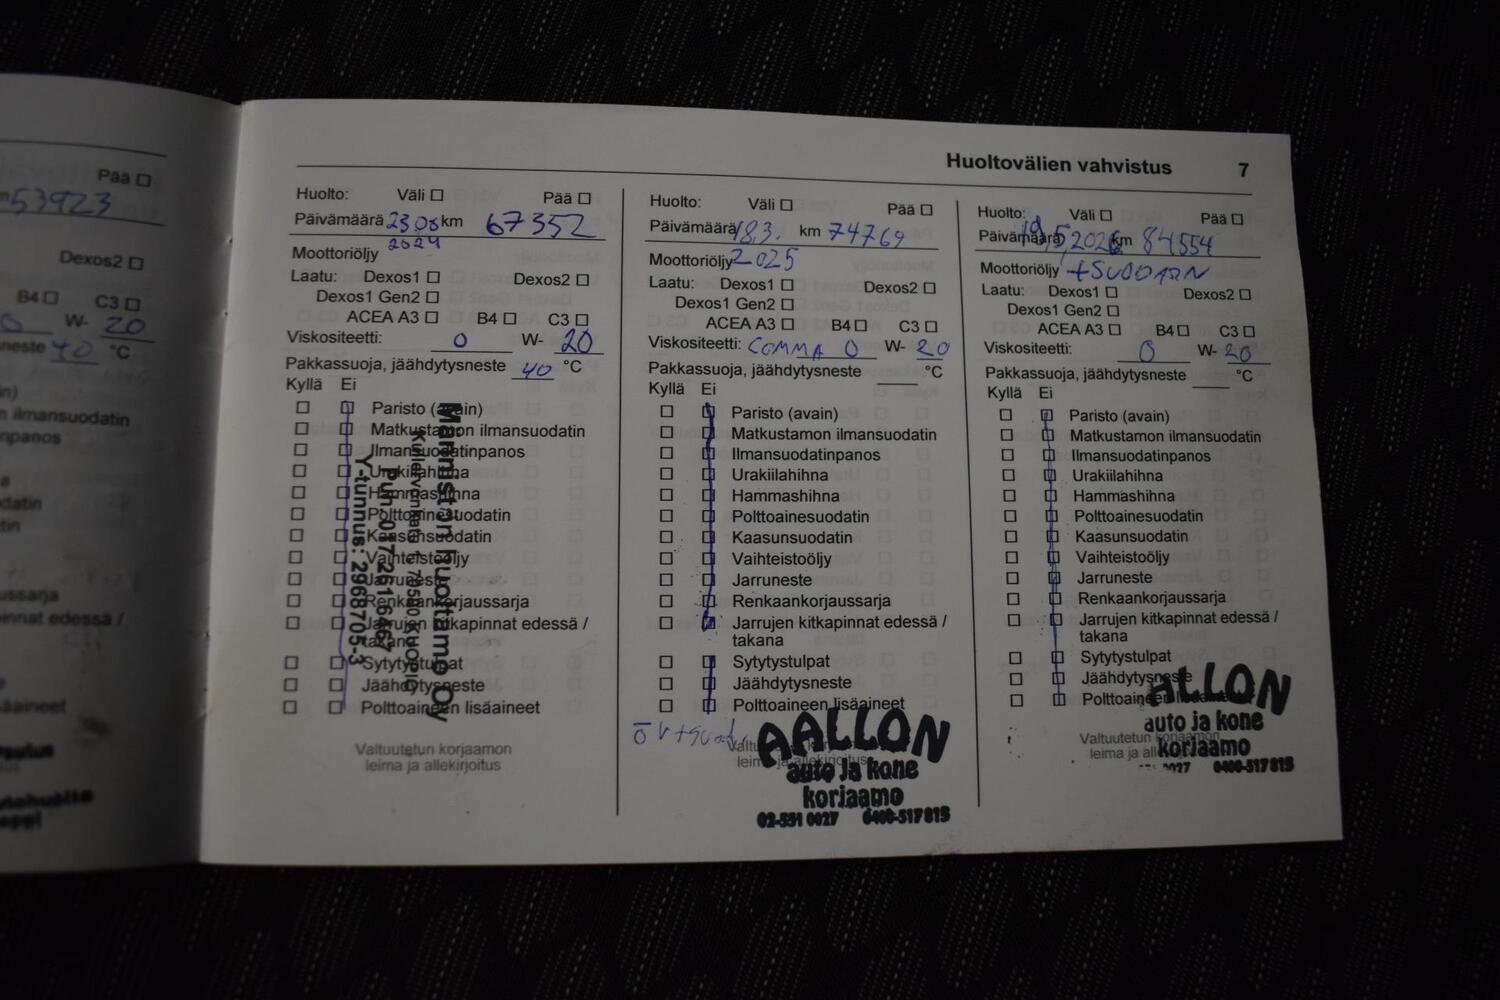 Pää ☐
53923
Dexos2 ☐
B4 ☐ C3 ☐
W- 20
40 °C
ilmansuodatin
Huoltovälien vahvistus 7
Huolto: Väli ☐ Pää ☐
Päivämäärä 23 08 km 67352
2024
Moottoriöljy
Laatu: Dexos1 ☐ Dexos2 ☐
Dexos1 Gen2 ☐
ACEA A3 ☐ B4 ☐ C3 ☐
Viskositeetti: 0 W- 20
Pakkassuoja, jäähdytysneste 40 °C
Kyllä Ei
☐ ☐ Paristo (avain)
☐ ☐ Matkustamon ilmansuodatin
☐ ☐ Ilmansuodatinpanos
☐ ☐ Urakiilahihna
☐ ☐ Hammashihna
☐ ☐ Polttoainesuodatin
☐ ☐ Kaasunsuodatin
☐ ☐ Vaihteistoöljy
☐ ☐ Jarruneste
☐ ☐ Renkaankorjaussarja
☐ ☐ Jarrujen kitkapinnat edessä /
takana
☐ ☐ Sytytystulpat
☐ ☐ Jäähdytysneste
☐ ☐ Polttoaineen lisäaineet
Valtuutetun korjaamon
leima ja allekirjoitus
Mannström huoltamo Oy
Puh. 017 2616467
Y-tunnus: 2968705-3
Huolto: Väli ☐ Pää ☐
Päivämäärä 18.3. km 74769
Moottoriöljy 2025
Laatu: Dexos1 ☐ Dexos2 ☐
Dexos1 Gen2 ☐
ACEA A3 ☐ B4 ☐ C3 ☐
Viskositeetti: COMMA 0 W- 20
Pakkassuoja, jäähdytysneste °C
Kyllä Ei
☐ ☐ Paristo (avain)
☐ ☐ Matkustamon ilmansuodatin
☐ ☐ Ilmansuodatinpanos
☐ ☐ Urakiilahihna
☐ ☐ Hammashihna
☐ ☐ Polttoainesuodatin
☐ ☐ Kaasunsuodatin
☐ ☐ Vaihteistoöljy
☐ ☐ Jarruneste
☐ ☐ Renkaankorjaussarja
☐ ☐ Jarrujen kitkapinnat edessä /
takana
☐ ☐ Sytytystulpat
☐ ☐ Jäähdytysneste
☐ ☐ Polttoaineen lisäaineet
AALLON
auto ja kone
korjaamo
02-551 0027 0400-517815
Huolto: Väli ☐ Pää ☐
Päivämäärä 19,5,2026 km 84554
Moottoriöljy +SUODATIN
Laatu: Dexos1 ☐ Dexos2 ☐
Dexos1 Gen2 ☐
ACEA A3 ☐ B4 ☐ C3 ☐
Viskositeetti: 0 W- 20
Pakkassuoja, jäähdytysneste °C
Kyllä Ei
☐ ☐ Paristo (avain)
☐ ☐ Matkustamon ilmansuodatin
☐ ☐ Ilmansuodatinpanos
☐ ☐ Urakiilahihna
☐ ☐ Hammashihna
☐ ☐ Polttoainesuodatin
☐ ☐ Kaasunsuodatin
☐ ☐ Vaihteistoöljy
☐ ☐ Jarruneste
☐ ☐ Renkaankorjaussarja
☐ ☐ Jarrujen kitkapinnat edessä /
takana
☐ ☐ Sytytystulpat
☐ ☐ Jäähdytysneste
☐ ☐ Polttoaineen lisäaineet
Valtuutetun korjaamon
ALLON
auto ja kone
korjaamo
0027 0400-517815